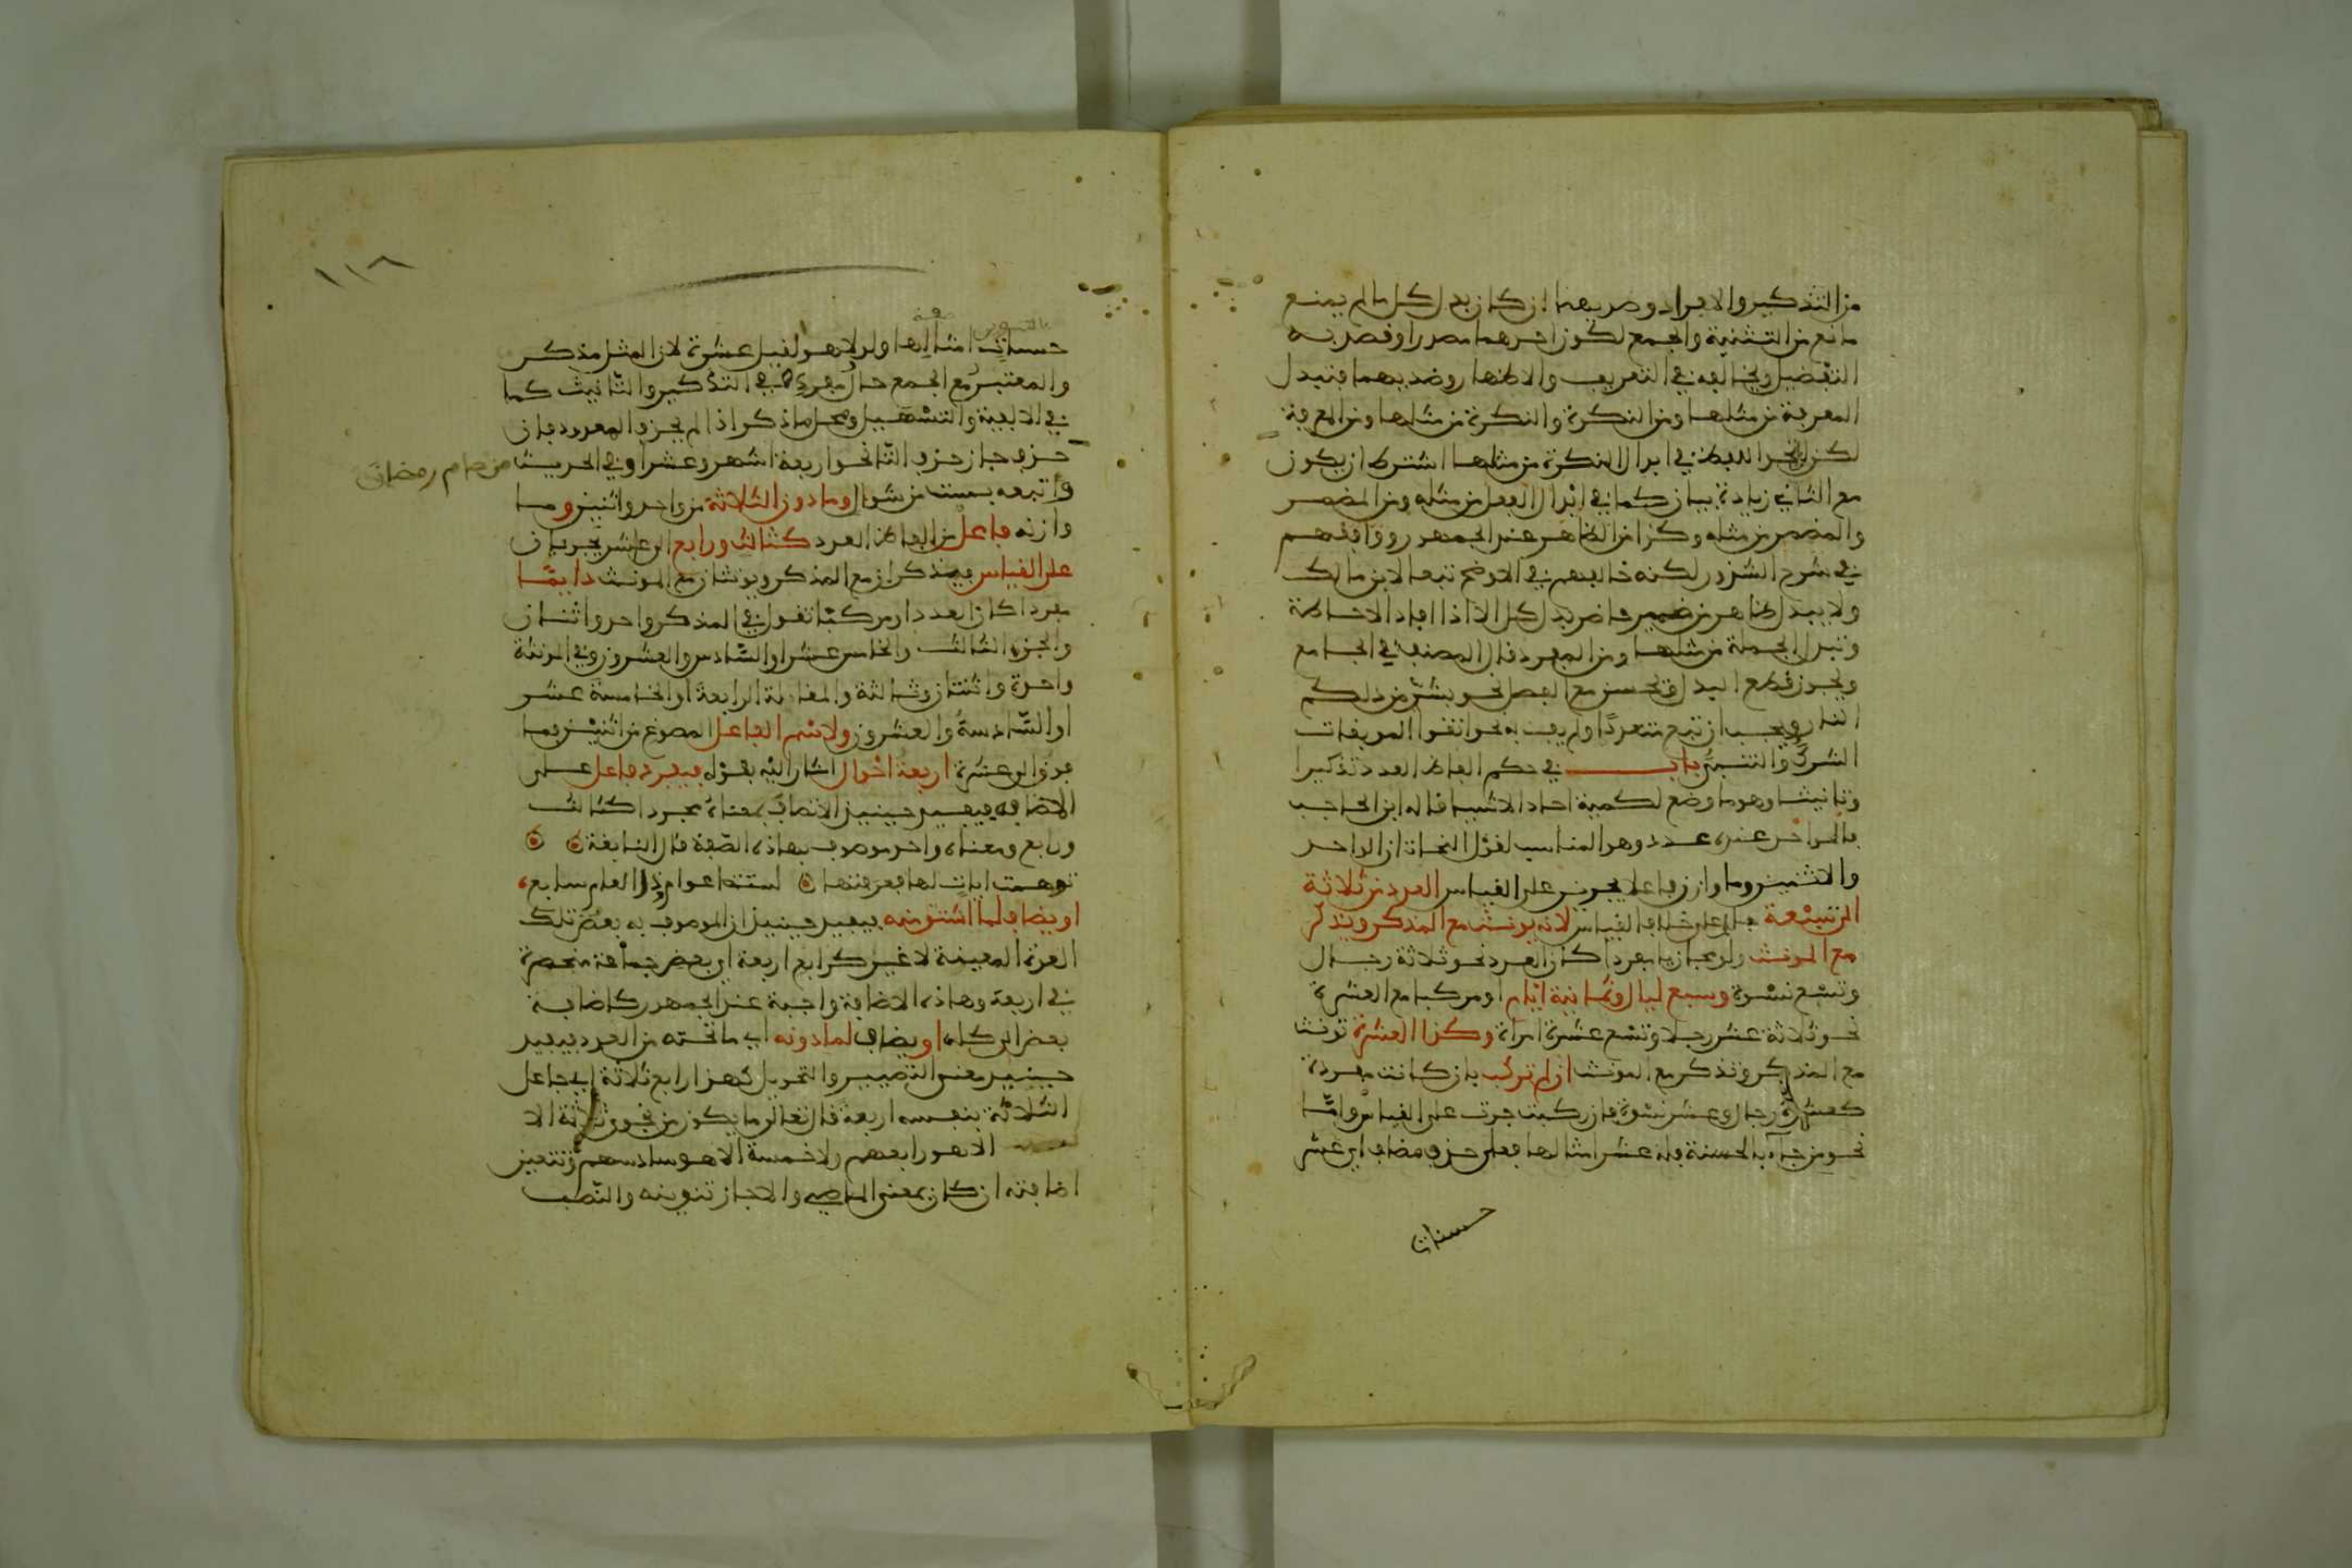 من التذكير والافراد وضديهما ان كان بدل كل ما لم يمنع
مانع من التثنية والجمع لكون احدهما مصدرا او قصد به
التفضيل ويخالفه في التعريف والاظهار وضديهما فتبدل
المعرفة من مثلها ومن النكرة والنكرة من مثلها ومن المعرفة
في ابدال النكرة من مثلها اشترط ان يكون
مع الثاني زيادة بيان كما في ابدال الفعل من مثله ومن المضمر
والمضمر من مثله وكذا من الظاهر عند الجمهور ووافقهم
في شرح الشذور لكنه خالفهم في الاوضح تبعا لابن مالك
ولا يبدل ظاهر من ضمير حاضر بدل كل الا اذا افاد الاحاطة
وتبدل الجملة من مثلها ومن المفرد قال المصنف في الجامع
ويجوز قطع البدل ويحسن مع الفصل نحو بشر من ذلكم
النار ويجب ان تبع متعددا ولم يف به نحو اتقوا الموبقات
الشرك والسحر باب في حكم الفاظ العدد تذكيرا
وتانيثا وهو ما وضع لكمية احاد الاشيا قاله ابن الحاجب
فالواحد عنده عدد وهو المناسب لقول النحاة ان الواحد
والاثنين وما وازن فاعلا يجرين على القياس العدد من ثلاثة
الى تسعة جار على خلاف القياس لانه يونث مع المذكر ويذكر
مع المونث ولو مجازيا مفردا كان العدد نحو ثلاثة رجال
وتسع نسوة وسبع ليال وثمانية ايام او مركبا مع العشرة
نحو ثلاثة عشر رجلا وتسع عشرة امراة وكذا العشرة تونث
مع المذكر وتذكر مع المونث ان لم تركب بان كانت مفردة
كعشرة رجال وعشر نسوة فان ركبت جرت على القياس واما
نحو من جاء بالحسنة فله عشر امثالها فعلى حذف مضاف اي عشر
حسنات
بالتنوين صفة
حسنات امثالها ولولا هو لقيل عشرة لان المثل مذكر
والمعتبر مع الجمع حال مفرده في التذكير والتانيث كما
في الالفية والتسهيل ومحل ما ذكر اذا لم يحذف المعدود فان
حذف جاز حذف التا نحو اربعة اشهر وعشرا وفي الحديث من صام رمضان
واتبعه بست من شوال وما دون الثلاثة من واحد واثنين وما
وازنه فاعل من الفاظ العدد كثالث ورابع الى عاشر يجريان
على القياس فيذكران مع المذكر ويونثان مع المونث دايما
مفردا كان العدد او مركبا تقول في المذكر واحد واثنان
والجزء الثالث والخامس عشر او السادس والعشرون وفي المونثة
واحدة واثنتان وثالثة والمقامة الرابعة او الخامسة عشر
او السادسة والعشرون ولاسم الفاعل المصوغ من اثنين فما
فوق الى عشرة اربعة احوال اشار اليه بقوله فيفرد فاعل على
الاضافة فيفيد حينيذ الاتصاف بمعناه مجردا كثالث
ورابع ومعناه واحد موصوف بهذه الصفة قال النابغة
توهمت ايات لها فعرفتها لستة اعوام وذا العام سابع
او يضاف لما اشتق منه فيفيد حينيذ ان الموصوف به بعض تلك
العدة المعينة لا غير كرابع اربعة اي بعض جماعة منحصرة
في اربعة وهاذه الاضافة واجبة عند الجمهور كاضافة
بعض الى كله او يضاف لما دونه اي ما تحته من العدد فيفيد
حينيذ معنى التصيير والتحويل كهذا رابع ثلاثة اي جاعل
الثلاثة بنفسه اربعة قال تعالى ما يكون من نجوى ثلاثة الا
الا هو رابعهم ولا خمسة الا هو سادسهم وتتعين
اضافته ان كان بمعنى الماضي والا جاز تنوينه والنصب
١١٨